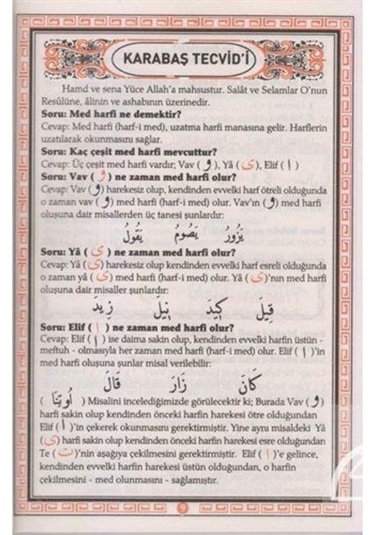 KARABAŞ TECVİD'İ
Hamd ve sena Yüce Allah'a mahsustur. Salât ve Selamlar O'nun
Resûlüne, âlinin ve ashabının üzerinedir.
Soru: Med harfi ne demektir?
Cevap: Med harfi (harf-i med), uzatma harfi manasına gelir. Harflerin
uzatılarak okunmasını sağlar.
Soru: Kaç çeşit med harfi mevcuttur?
Cevap: Üç çeşit med harfi vardır; Vav (و), Yâ (ى), Elif (ا)
Soru: Vav (و) ne zaman med harfi olur?
Cevap: Vav (و) harekesiz olup, kendinden evvelki harf ötreli olduğunda
o zaman vav (و) med harfi (harf-i med) olur. Vav'ın (و) med harfi
oluşuna dair misallerden üç tanesi şunlardır:
يَزُورُ يَصُومُ يَقُولُ
Soru: Yâ (ى) ne zaman med harfi olur?
Cevap: Yâ (ى) harekesiz olup, kendinden evvelki harf esreli olduğunda
o zaman yâ (ى) med harfi (harf-i med) olur. Yâ (ى)'nın med harfi
oluşuna dair misaller şunlardır:
قِيلَ كِيدَ نِيلَ زِيدَ
Soru: Elif (ا) ne zaman med harfi olur?
Cevap: Elif (ا) ise daima sakin olup, kendinden evvelki harfin üstün -
meftuh - olmasıyla her zaman med harfi (harf-i med) olur. Elif (ا)'in
med harfi oluşuna şunlar misal verilebilir:
كَانَ زَارَ قَالَ
(أُوتِينَا) Misalini incelediğimizde görülecektir ki; Burada Vav (و)
harfi sakin olup kendinden önceki harfin harekesi ötre olduğundan
Elif (ا)'in çekerek okunmasını gerektirmiştir. Yine aynı misaldeki Yâ
(ى) harfi sakin olup kendinden önceki harfin harekesi esre olduğundan
Te (ت)'nin aşağıya çekilmesini gerektirmiştir. Elif (ا)'e gelince,
kendinden evvelki harfin harekesi üstün olduğundan, o harfin
çekilmesini - med olunmasını - sağlamıştır.